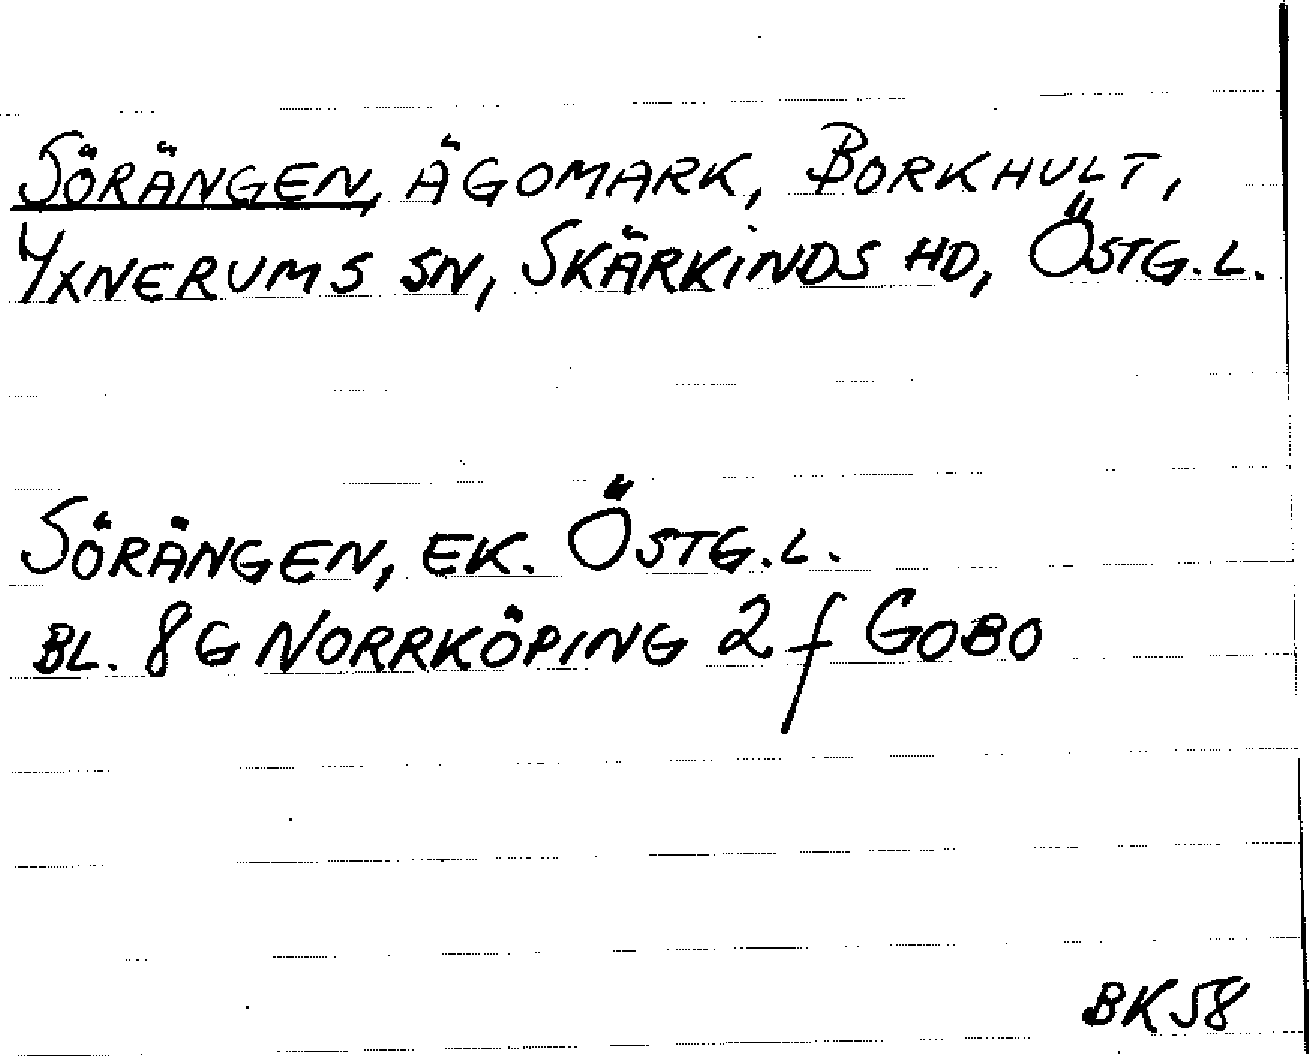 SÖRÄNGEN, ÄGOMARK, BORKHULT,
YXNERUMS SN, SKÄRKINDS HD, ÖSTG.L.
SÖRÄNGEN, EK. ÖSTG.L.
BL. 8G NORRKÖPING 2 f GOBO
BK58